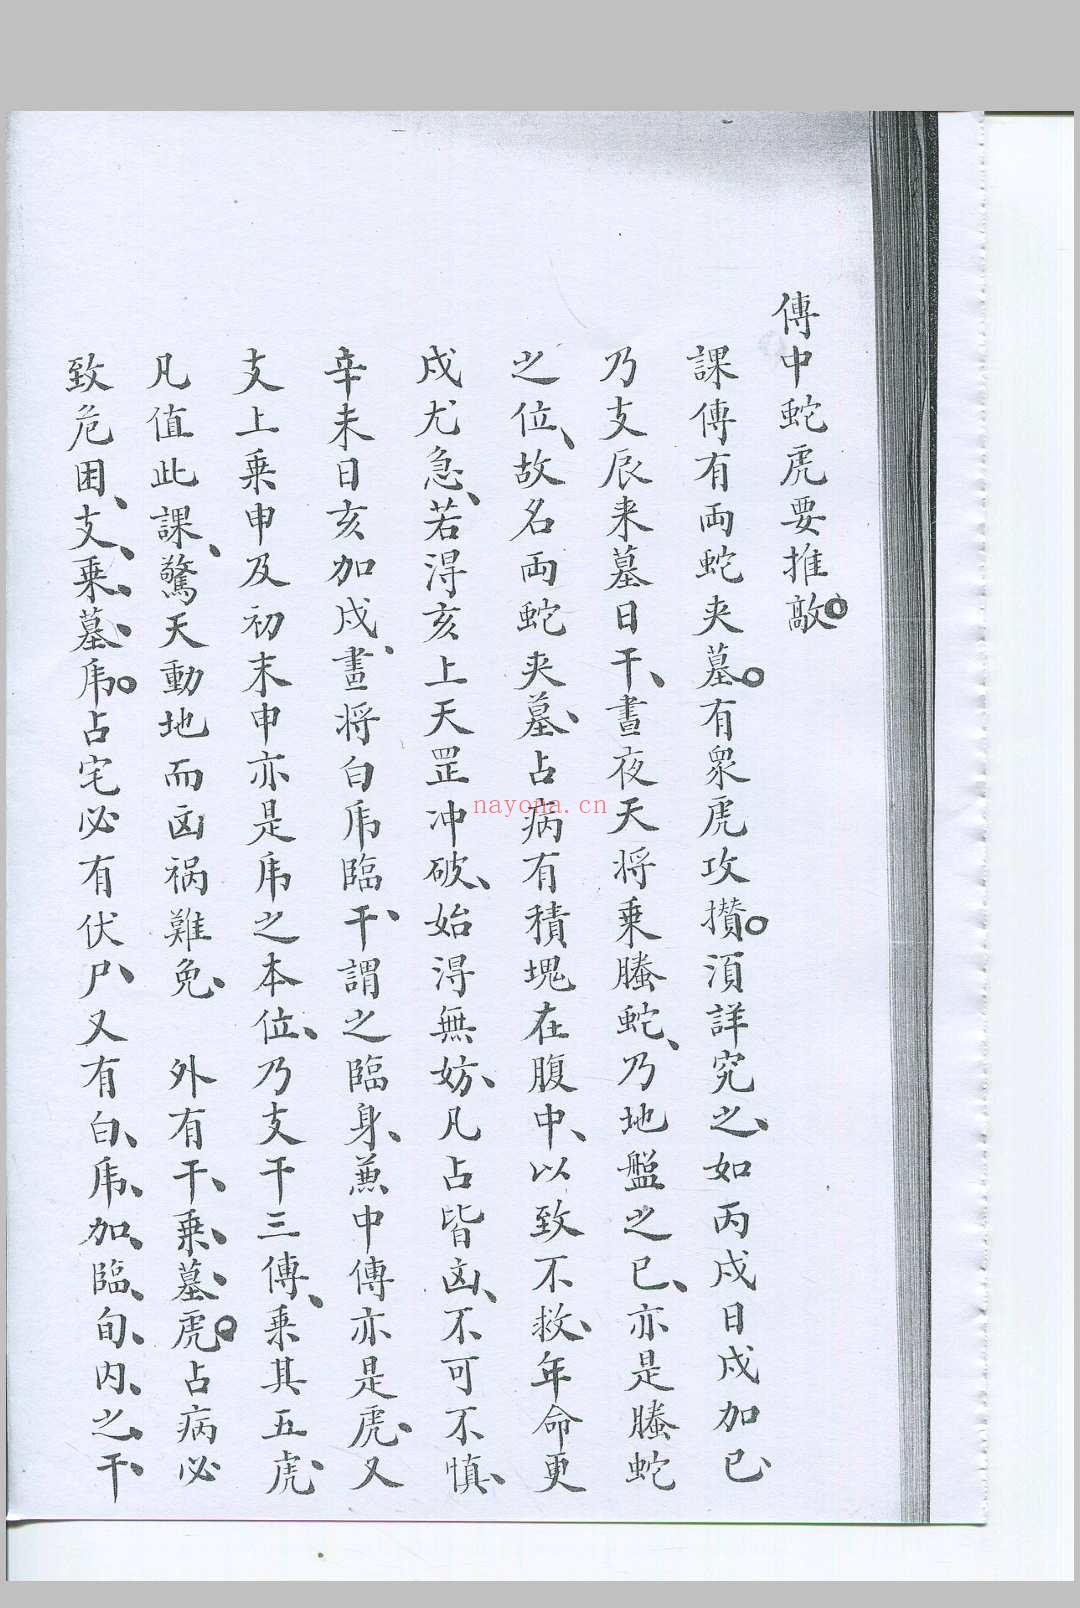 傳中蛇虎要推敲。
課傳有兩蛇夾墓。有衆虎攻攅。湏詳究之、如丙戍日戍加巳、
乃支辰来墓日干、晝夜天将乗螣蛇、乃地盤之巳、亦是螣蛇
之位、故名兩蛇夾墓、占病有積塊在腹中、以致不救、年命更
戍尤急、若淂亥上天罡冲破、始淂無妨、凡占皆凶、不可不慎、
辛未日亥加戍、晝将白虎臨干、謂之臨身、蕪中傳亦是虎、又
支上乗申及初末申亦是虎之本位、乃支干三傳、乗其五虎、
凡值此課、驚天動地而凶祸難免、 外有干、乗、墓、虎。占病必
致危困、支、乗、墓、虎。占宅必有伏尸、又有白、虎、加、臨、旬、内、之、干、
nayona.cn